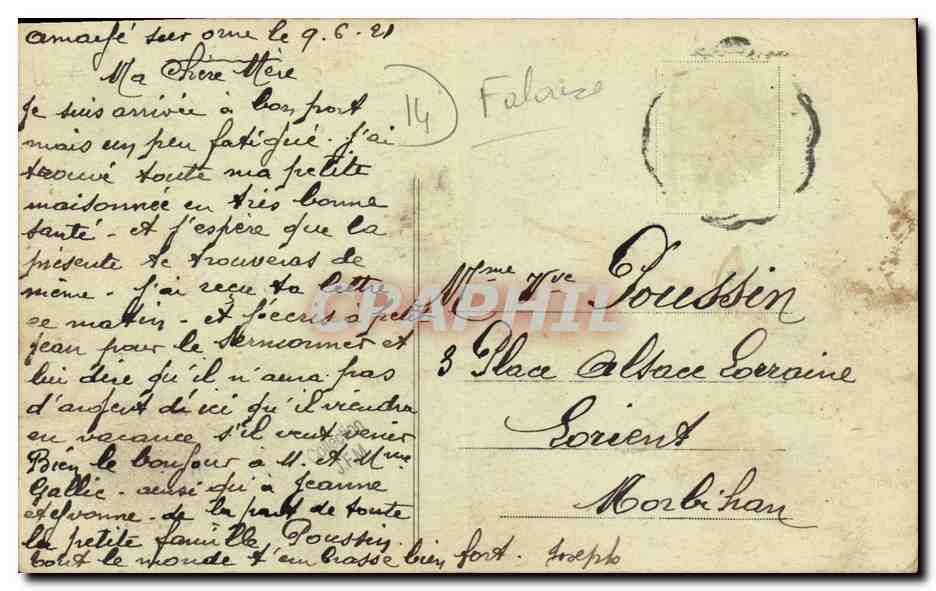 amayé sur orne le 9.6.21
Ma Chère Mère
Je suis arrivée à bon port
mais un peu fatigué. J'ai
trouvé toute ma petite
maisonnée en très bonne
santé - et j'espère que la
présente te trouveras de
même - J'ai reçu ta lettre
ce matin - et j'écris à petit
jean pour le sermonner et
lui dire qu'il n'aura pas
d'argent d'ici qu'il viendra
en vacance s'il veut venir
Bien le bonjour à M. et Mme
Gallic - ainsi qu'à Jeanne
et Yvonne - de la part de toute
la petite famille Poussin.
tout le monde t'embrasse bien fort. Joseph
14
Falaise
Mme Vve Poussin
3 Place Alsace Lorraine
Lorient
Morbihan
CPAPHIL
Collection